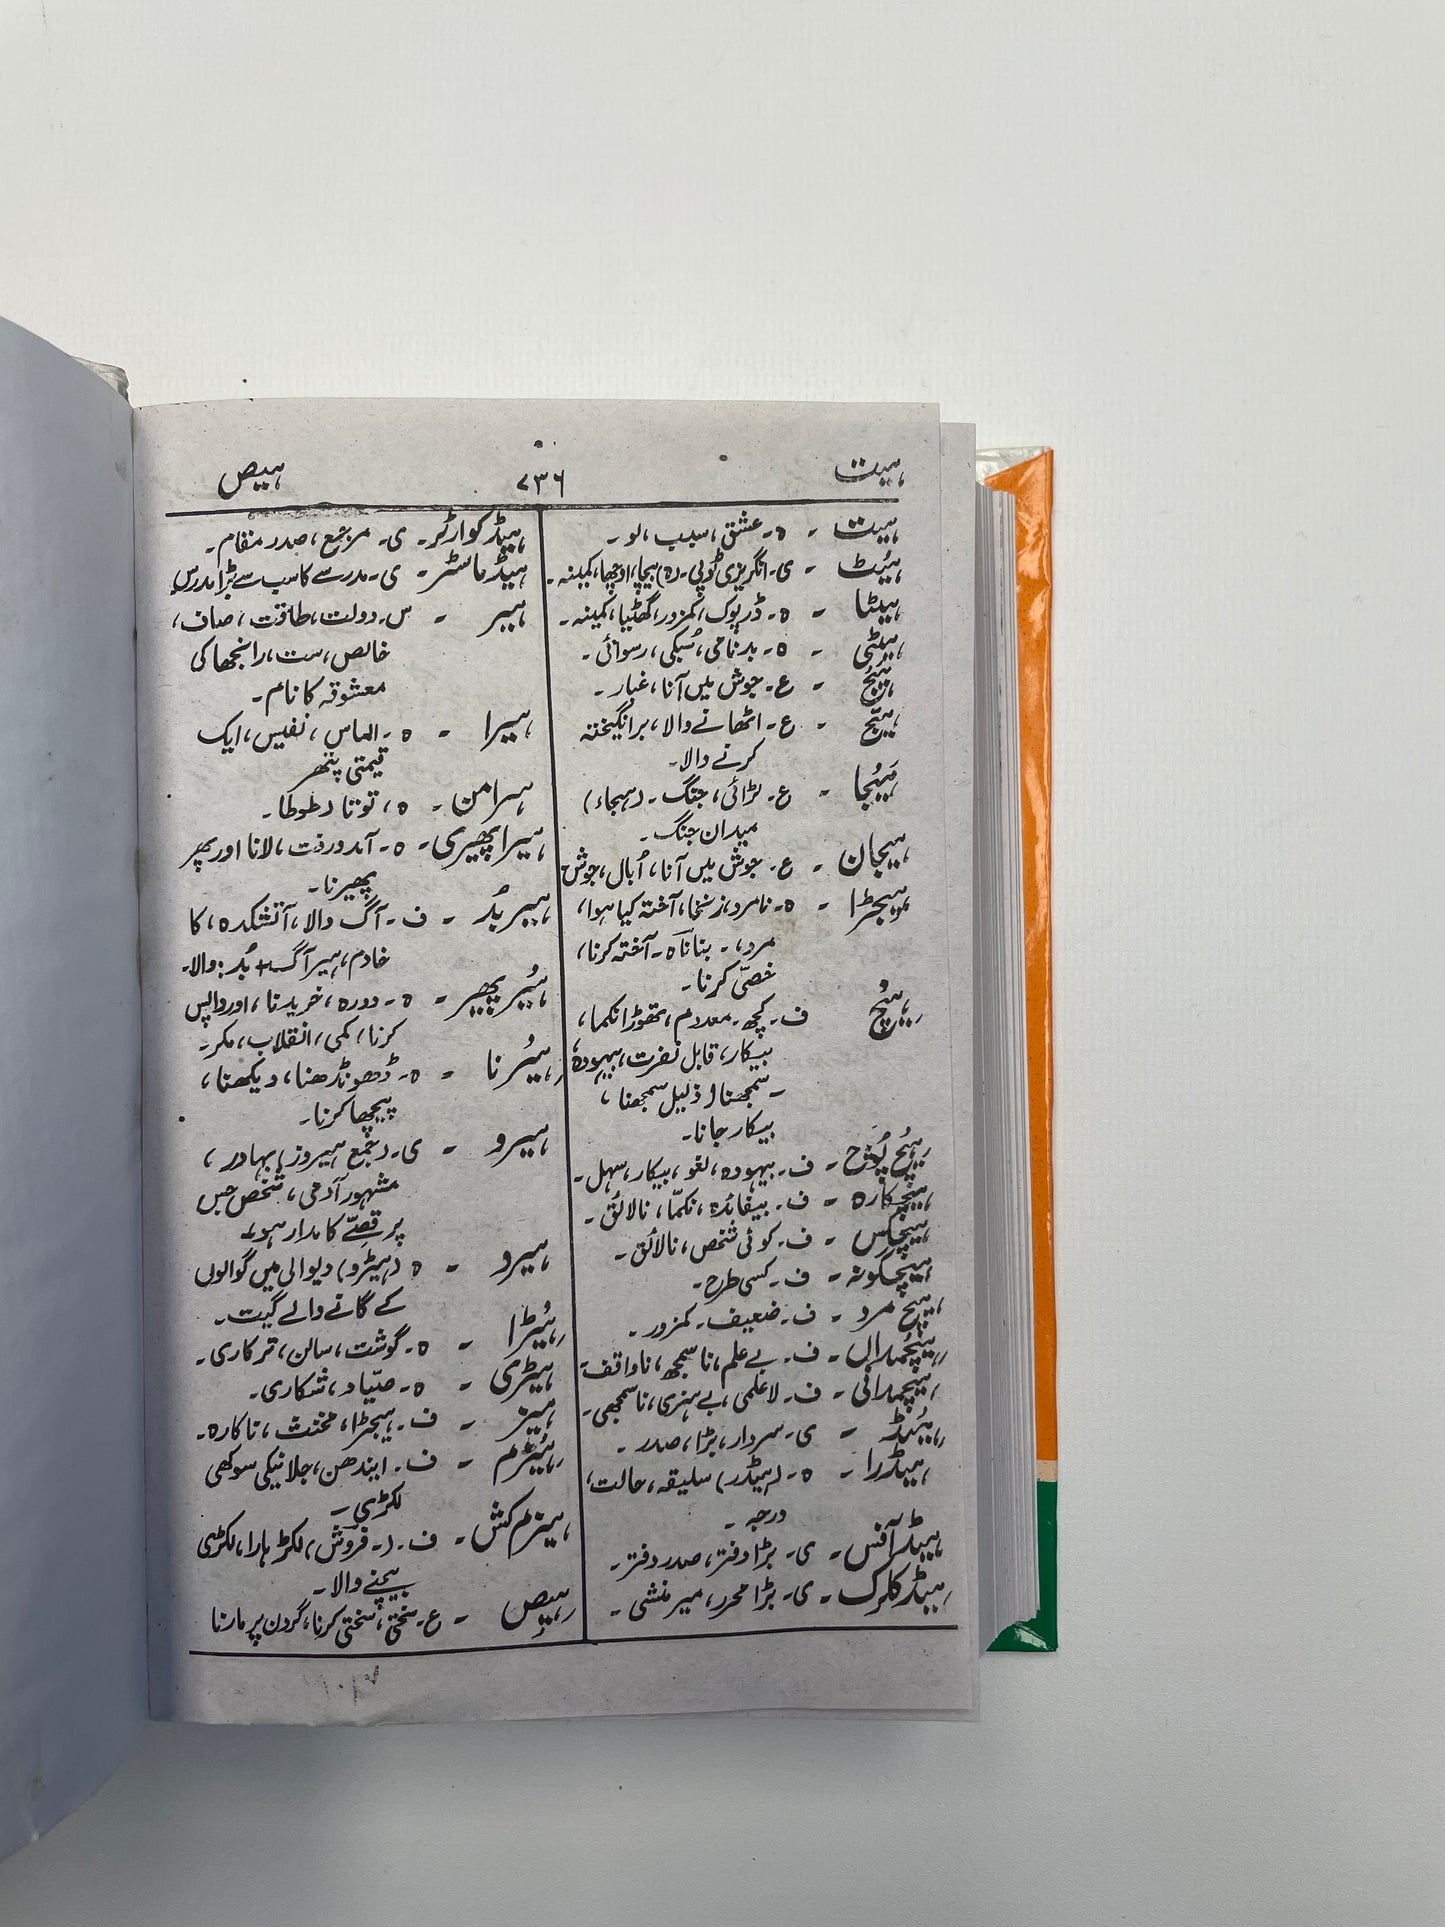 ہیت ۷۳۶ ہیص
ہیت - ہ- عشق، سبب، لو-
ہیٹ - ی- انگریزی ٹوپی- (ہ) ہیچا، اوچھا، کمینہ-
ہیٹا - ہ- ڈرپوک، کمزور، گھٹیا، کمینہ-
ہیٹی - ہ- بدنامی، سُبکی، رسوائی-
ہیج - ع- جوش میں آنا، غبار-
ہیج - ع- اٹھانے والا، برانگیختہ
کرنے والا-
ہیجا - ع- لڑائی، جنگ- (ہیجاء)
میدان جنگ-
ہیجان - ع- جوش میں آنا، اُبال، جوش
ہیجڑا - ہ- نامرد، زنخا، آختہ کیا ہوا،
مرد، - بنانا ہ- آختہ کرنا،
خصّی کرنا-
ہیچ ف- کچھ- معدوم، تھوڑا نکما،
بیکار، قابل نفرت، بیہودہ،
- سمجھنا (ذلیل سمجھنا،
بیکار جانا-
ہیچ پُوچ - ف- بیہودہ، لغو، بیکار، سہل-
ہیچکارہ - ف- بیفائدہ، نکمّا، نالائق-
ہیچکس - ف- کوئی شخص، نالائق-
ہیچگونہ - ف- کسی طرح-
ہیچ مرد - ف- ضعیف- کمزور-
ہیچمداں - ف- بے علم، ناسمجھ، ناواقف-
ہیچمدانی - ف- لاعلمی، بے ہنری، ناسمجھی-
ہیڈ - ی- سردار، بڑا، صدر-
ہیڈرا - ہ- (ہیڈر) سلیقہ، حالت،
درجہ-
ہیڈ آفس - ی- بڑا دفتر، صدر دفتر-
ہیڈ کلرک - ی- بڑا محرر، میر منشی-
ہیڈ کوارٹر - ی- مرجع، صدر مقام-
ہیڈ ماسٹر - ی- مدرسے کا سب سے بڑا مدرس
ہیر - س- دولت، طاقت، صاف،
خالص، ست، رانجھا کی
معشوقہ کا نام-
ہیرا - ہ- الماس، نفیس، ایک
قیمتی پتھر
ہیرامن - ہ، توتا (طوطا)-
ہیرا پھیری - ہ- آمدورفت، لانا اور پھر
پھیرنا-
ہیر بُد - ف- آگ والا، آتشکدہ، کا
خادم، ہیر آگ + بُد: والا-
ہیر پھیر - ہ- دورہ، خریدنا، اور واپس
کرنا، کمی، انقلاب، مکر-
ہیرنا - ہ- ڈھونڈھنا، دیکھنا،
پیچھا کرنا-
ہیرو - ی- (جمع ہیروز) بہادر،
مشہور آدمی، شخص جس
پر قصّے کا مدار ہو-
ہیرو - ہ (ہیڑو) دیوالی میں گوالوں
کے گانے والے گیت-
ہیڑا - ہ- گوشت، سالن، ترکاری-
ہیڑی - ہ- صیّاد، شکاری-
ہیز - ف- ہیجڑا، مخنث، ناکارہ-
ہیزم - ف- ایندھن، جلانیکی سوکھی
لکڑی-
ہیزم کش - ف- (- فروش) لکڑہارا، لکڑی
بیچنے والا-
ہیص - ع- سختی، سختی کرنا، گردن پر مارنا